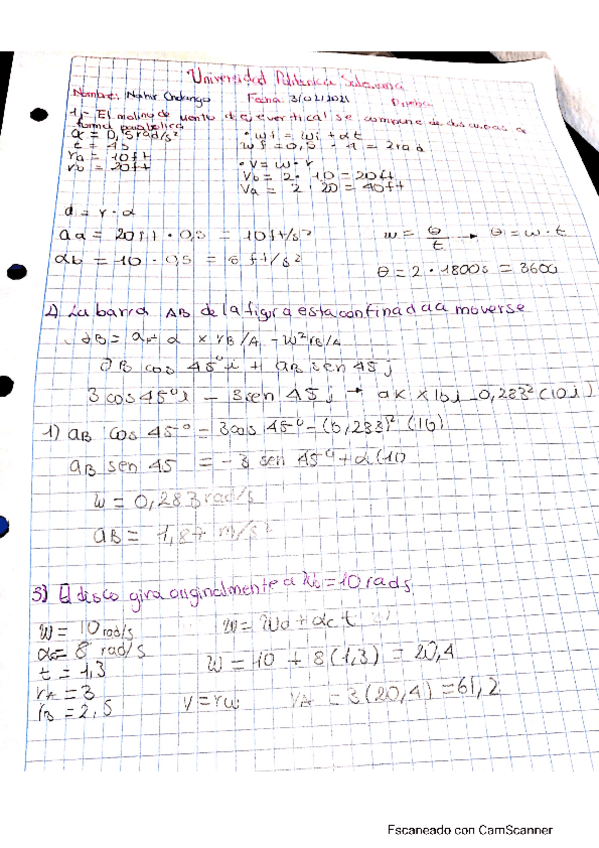 Universidad Politécnica Salesiana
Nombre: Fecha: 3/02/2021 Prueba
1.- El molino de viento de eje vertical se compone de dos aspas de
forma parabolica
α = 0,5 rad/s² • wf = wi + αt
t = 4s wf = 0,5 · 4 = 2rad
ra = 10ft • v = w · r
rb = 20ft Vb = 2 · 10 = 20ft
Va = 2 · 20 = 40ft
a = r · α
aa = 20ft • 0,5 = 10 ft/s² w = θ/t → θ = w · t
ab = 10 · 0,5 = 5 ft/s²
θ = 2 • 1800s = 3600
2) La barra AB de la figura esta confinada a moverse
aB = aA + α × rB/A - w²rB/A
aB cos 45° i + aB sen 45 j
3 cos 45° i - 3 sen 45 j → αk × 10i - 0,283² (10i)
1) aB cos 45° = 3cos 45° - (0,283)² (10)
aB sen 45 = -3 sen 45° + α(10
w = 0,283 rad/s
aB = 1,87 m/s²
3) El disco gira originalmente a Wo = 10 rads
w = 10 rad/s w = Wo + αc t
αc = 8 rad/s
t = 1,3 w = 10 + 8(1,3) = 20,4
rA = 3
rB = 2,5 v = rw vA = 3(20,4) = 61,2
Escaneado con CamScanner